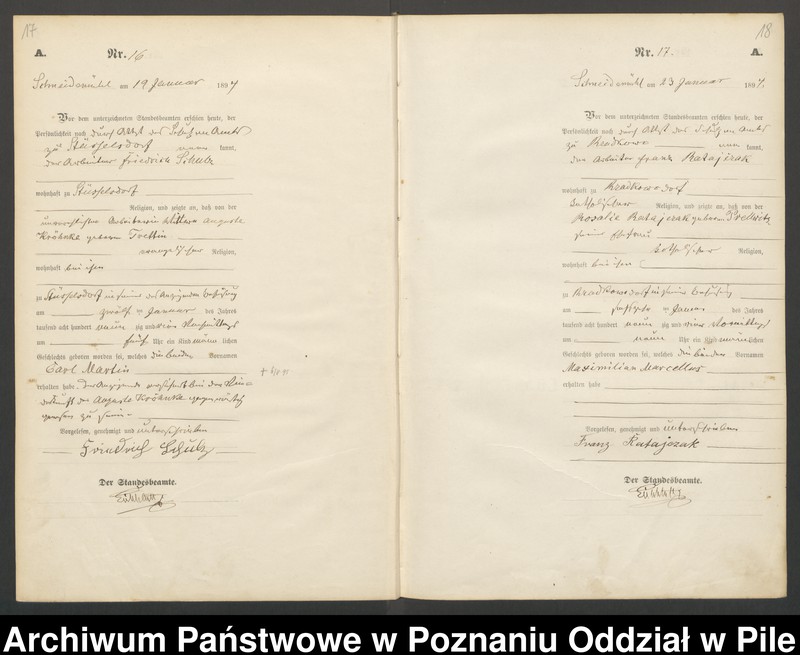 17
A. Nr. 16
Schneidemühl am 19 Januar 1894
Vor dem unterzeichneten Standesbeamten erschien heute, der
Persönlichkeit nach durch Attest des Schulzen Amts
zu Stüsselsdorf kannt,
der Arbeiter Friedrich Schulz
wohnhaft zu Stüsselsdorf
Religion, und zeigte an, daß von der
Wittwe Auguste
Krőhnke geborene Trettin
evangelischer Religion,
wohnhaft bei ihm
zu Stüsselsdorf in seiner Behausung
am zwölf ten Januar des Jahres
tausend acht hundert neun zig und vier Nachmittags
um fünf Uhr ein Kind männ lichen
Geschlechts geboren worden sei, welches die beiden Vornamen
Carl Martin
erhalten habe. Der Anzeigende versichert bei der Nieder
kunft der Auguste Kröhnke gegenwärtig
gewesen zu sein.
Vorgelesen, genehmigt und unterschrieben
Friedrich Schulz
Der Standesbeamte.
18
Nr. 17. A.
Schneidemühl am 23 Januar 1894.
Vor dem unterzeichneten Standesbeamten erschien heute, der
Persönlichkeit nach durch Attest des Schulzen Amts
zu kannt,
der Arbeiter Franz Ratajczak
wohnhaft zu
katholischer Religion, und zeigte an, daß von der
Rosalie Ratajczak geborene
seiner Ehefrau
katholischer Religion,
wohnhaft bei ihm
zu in seiner Behausung
am ten Januar des Jahres
tausend acht hundert neun zig und vier Vormittags
um neun Uhr ein Kind männlichen
Geschlechts geboren worden sei, welches die beiden Vornamen
Maximilian Marcellus
erhalten habe
Vorgelesen, genehmigt und unterschrieben
Franz Ratajczak
Der Standesbeamte.
Archiwum Państwowe w Poznaniu Oddział w Pile